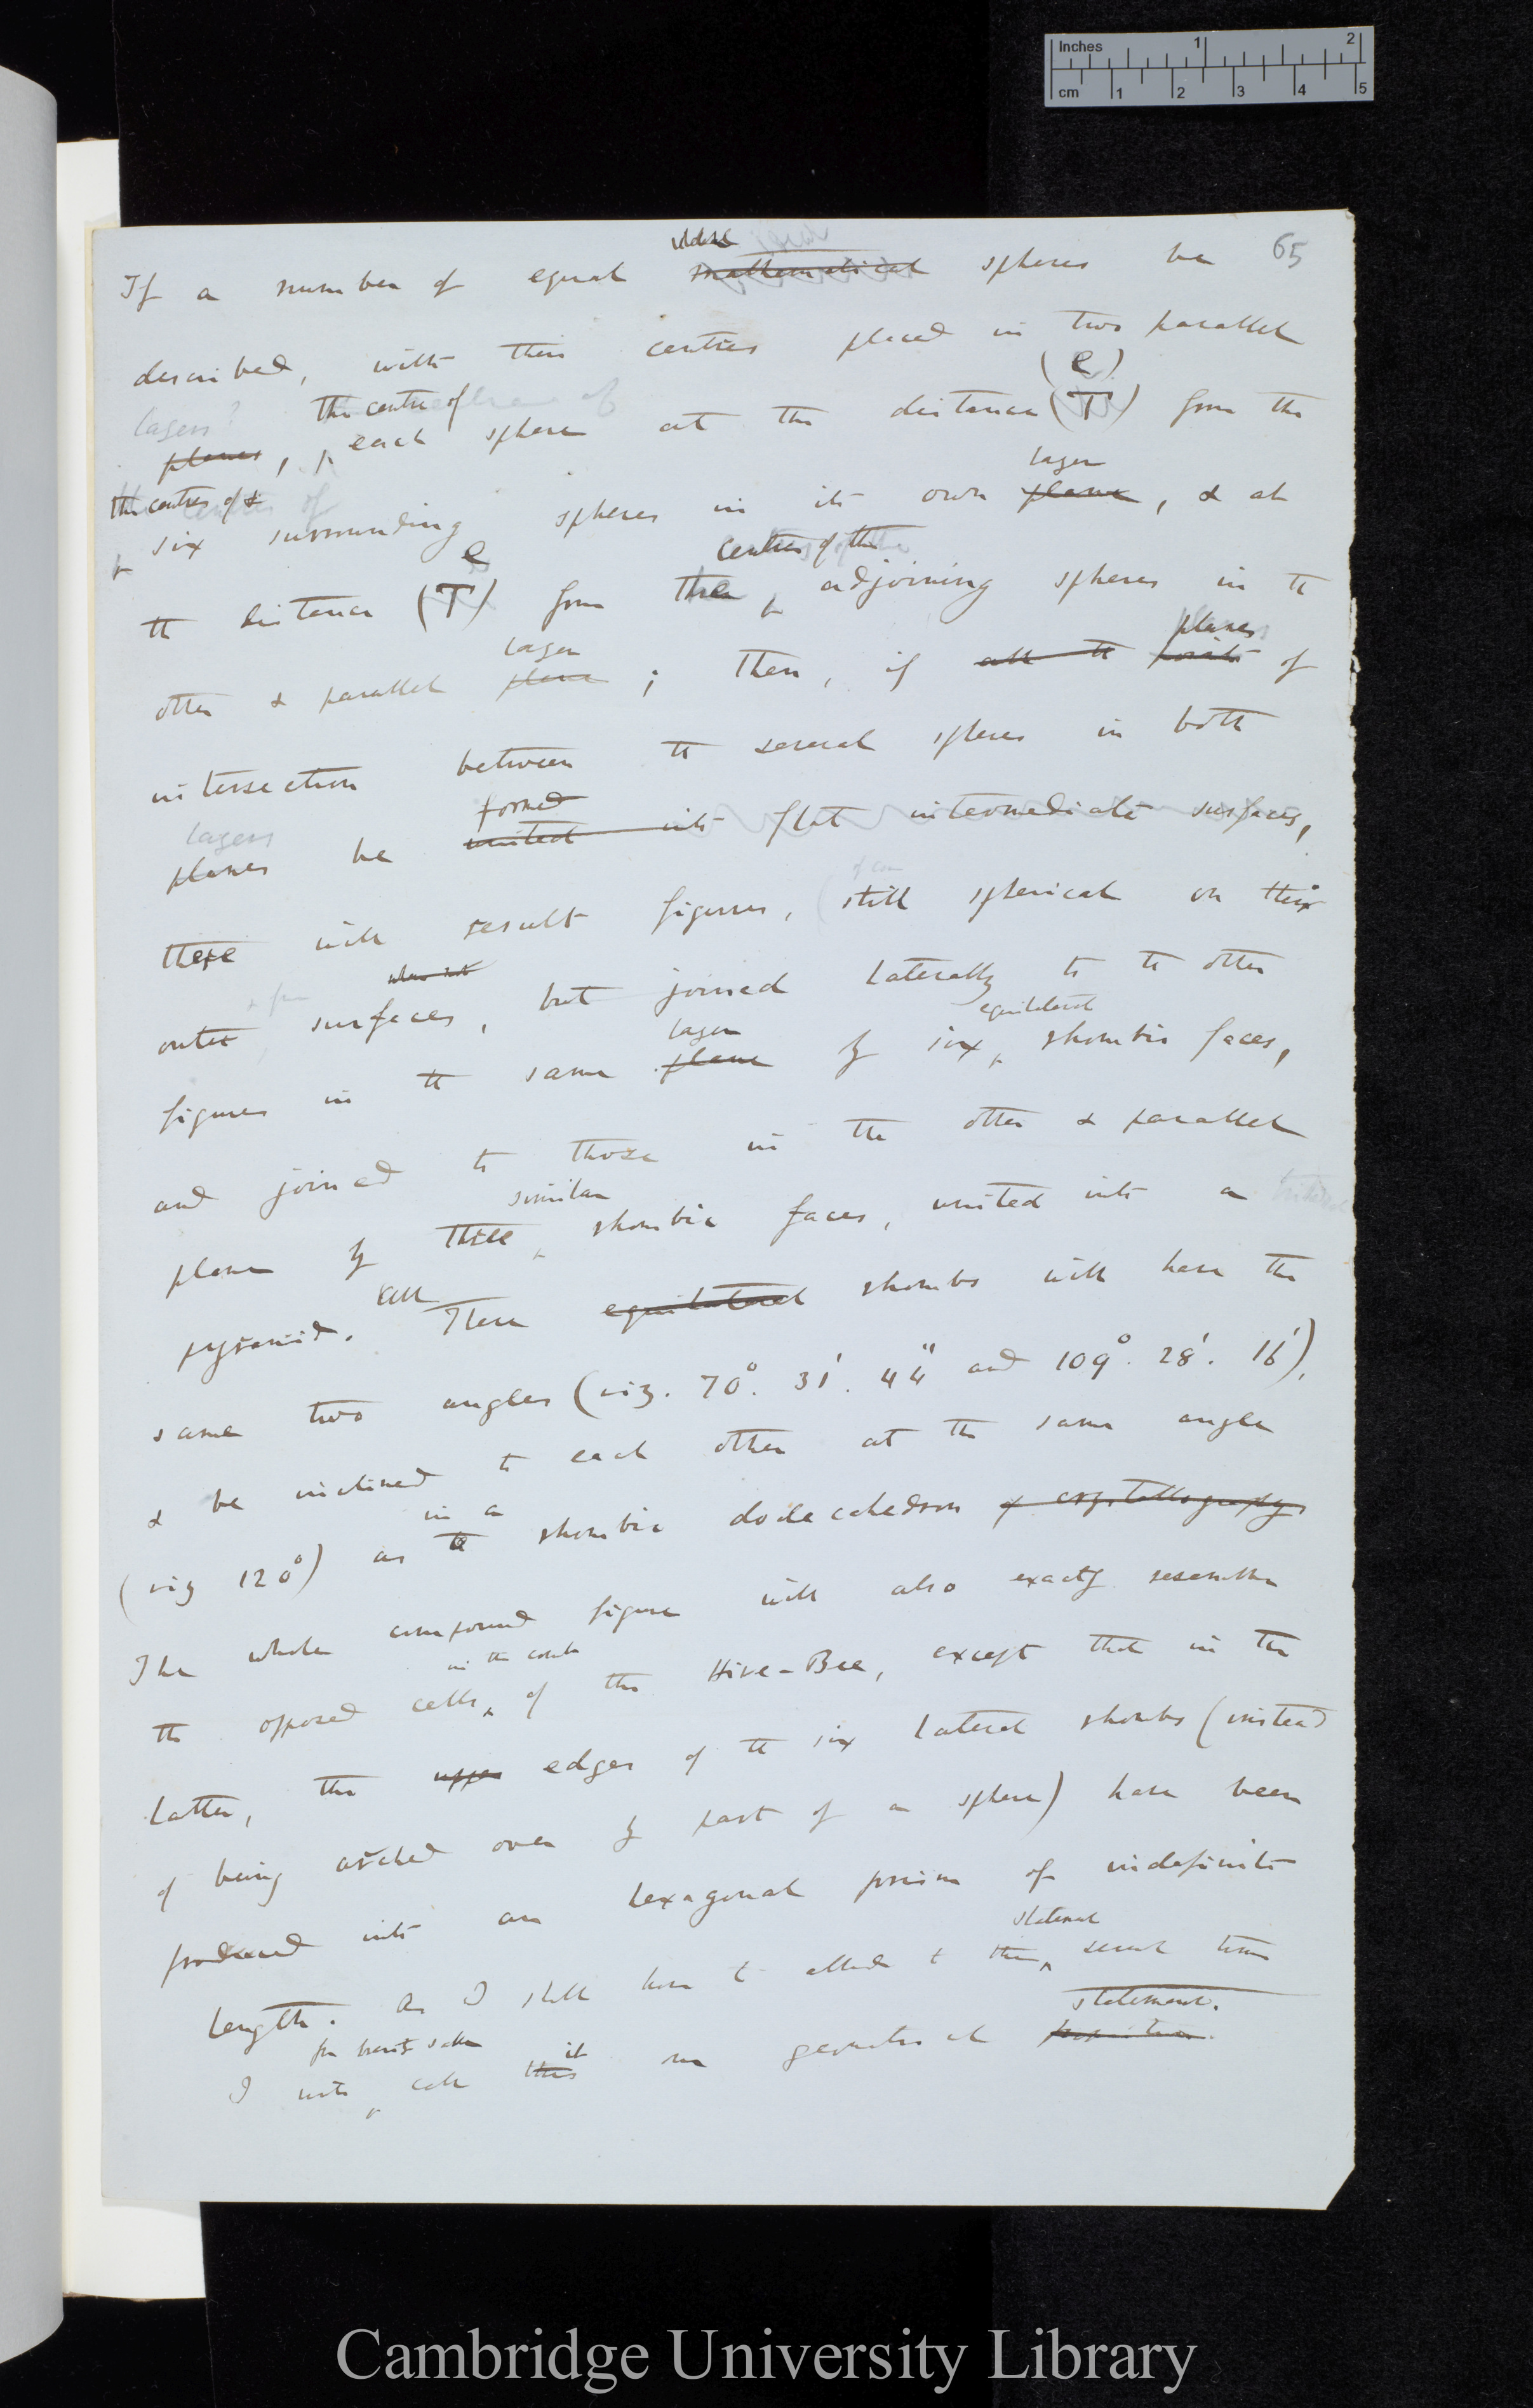 Inches 1 2
cm 1 2 3 4 5
65
If a number of equal mathematical spheres be
described, with their centres placed in two parallel
(e)
layers? the centre of
planes, each sphere at the distance (T) from the
layer
the centres of
six surrounding spheres in its own plane, & at
e centres of the
the distance (T) from the adjoining spheres in the
layer planes
other & parallel plane; then, if all the points of
intersection between the several spheres in both
layers formed
planes be united into flat intermediate surfaces,
there will result figures, (still spherical on their
outer surfaces, but joined laterally to the other
layer equilateral
figures in the same plane by six rhombic faces,
and joined to those in the other & parallel
similar
plane by three rhombic faces, united into a
all
pyramid. These equilateral rhombs will have the
same two angles (viz. 70°. 31'. 44" and 109°. 28'. 16'),
& be inclined to each other at the same angle
in a
(viz 120°) as the rhombic dodecahedron of crystallography
The whole compound figure will also exactly resemble
in the comb
the opposed cells of the Hive-Bee, except that in the
latter, the upper edges of the six lateral rhombs (instead
of being arched over by part of a sphere) have been
produced into an hexagonal prism of indefinite
statement
length. As I shall have to allude to this several times
for brevity sake it statement.
I will call this our geometrical proposition.
Cambridge University Library